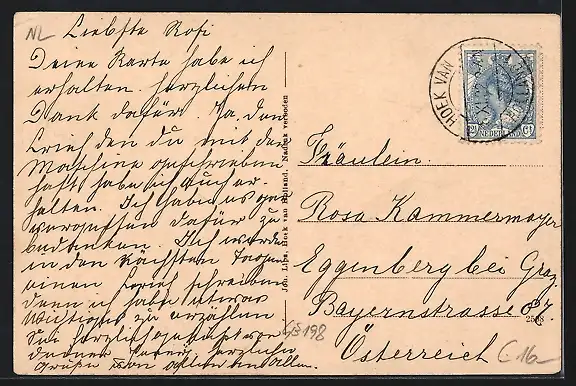 NL
Liebste Rosi
Deine Karte habe ich
erhalten. herzlichen
Dank dafür. Ja den
Brief den du mit der
Maschine geschrieben
hast habe ich auch er-
halten. Ich habe es ganz
vergessen dafür zu
bedanken. Ich werde
in den nächsten Tagen
einen Brief schreiben
denn ich habe etwas
wichtiges zu erzählen
Sei herzlich geküsst von
deiner herzliche
grüße von allen an allen.
Jos. Lips. Hoek van Holland. Nadruk verboden
HOEK VAN HOLLAND
NEDERLAND
Fräulein.
Rosa Kammermayer
Eggenberg bei Graz
Bayernstrasse 87.
Österreich
GB198
C16